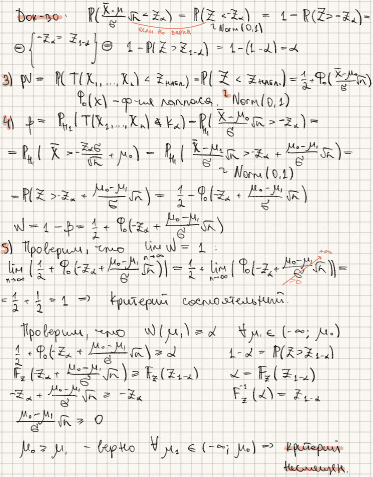 Док-во: P(X̄-μ₀/σ √n < -z_α) = P(Z < -z_α) = 1 - P(Z > -z_α) =
если H₀ верна ~ Norm(0,1)
⊜ {-z_α = z_{1-α}} ⊜ 1 - P(Z > z_{1-α}) = 1 - (1-α) = α
3) pV = P(T(X₁,...,Xₙ) < z_набл.) = P(Z < z_набл.) = 1/2 + Φ₀(X̄-μ₀/σ √n)
Φ₀(x) - ф-ция Лапласа. ~ Norm(0,1)
4) β = P_{H₁}(T(X₁,...,Xₙ) ∉ K_α) = P_{H₁}(X̄-μ₀/σ √n > -z_α) =
= P_{H₁}(X̄ > -z_α σ/√n + μ₀) = P_{H₁}(X̄-μ₁/σ √n > -z_α + μ₀-μ₁/σ √n) =
~ Norm(0,1)
= P(Z > -z_α + μ₀-μ₁/σ √n) = 1/2 - Φ₀(-z_α + μ₀-μ₁/σ √n)
W = 1 - β = 1/2 + Φ₀(-z_α + μ₀-μ₁/σ √n)
5) Проверим, что lim_{n→∞} W = 1 :
lim_{n→∞} (1/2 + Φ₀(-z_α + μ₀-μ₁/σ √n)) = 1/2 + lim_{n→∞} (Φ₀(-z_α + μ₀-μ₁/σ √n)) =
= 1/2 + 1/2 = 1 ⇒ критерий состоятельный.
Проверим, что W(μ₁) ≥ α ∀μ₁ ∈ (-∞; μ₀)
1/2 + Φ₀(-z_α + μ₀-μ₁/σ √n) ≥ α 1-α = P(Z > z_{1-α})
F_Z(-z_α + μ₀-μ₁/σ √n) ≥ F_Z(z_{1-α}) α = F_Z(z_{1-α})
-z_α + μ₀-μ₁/σ √n ≥ -z_α F_Z⁻¹(α) = z_{1-α}
μ₀-μ₁/σ √n ≥ 0
μ₀ ≥ μ₁ - верно ∀μ₁ ∈ (-∞; μ₀) ⇒ критерий
несмещен.